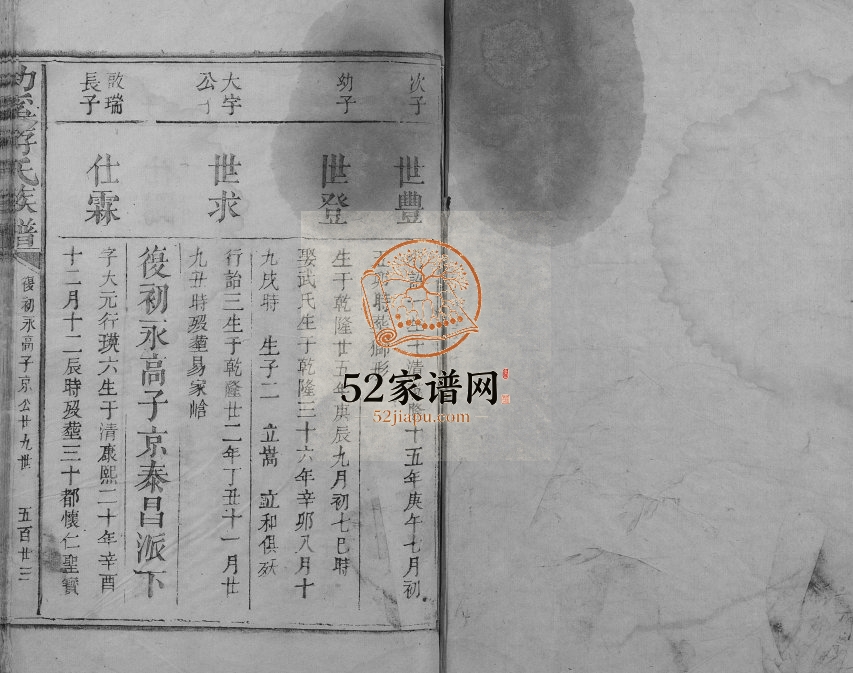 次子
世豐
十五年庚午七月初
幼子
世登
生于乾隆廿五年庚辰九月初七巳時
娶武氏生于乾隆三十六年辛卯八月十
九戌時 生子二 立嵩 立和俱殀
大宇
公子
世求
行詒三生于乾隆廿二年丁丑十一月廿
九丑時歿葬易家
復初永高子京泰昌派下
敦瑞
長子
仕霖
字大元行瑛六生于清康熙二十年辛酉
十二月十二辰時歿葬三十都懷仁聖寶
氏族譜
復初永高子京公廿九世
五百廿三
52家谱网
52jiapu.com